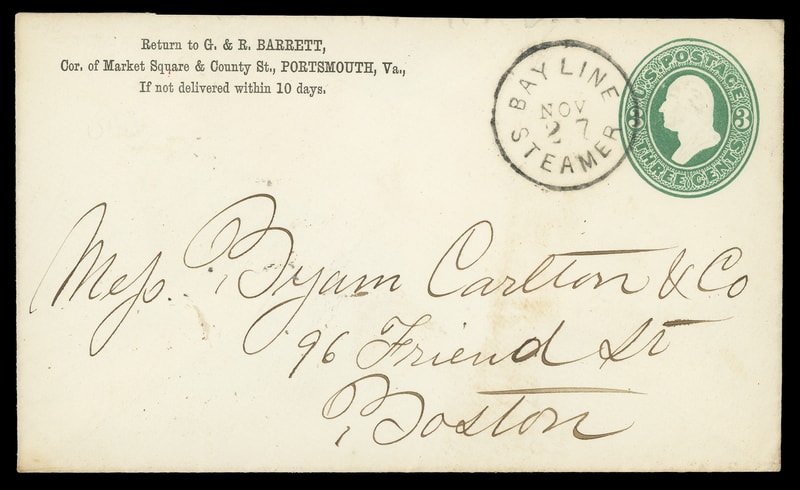 Return to G. & R. BARRETT,
Cor. of Market Square & County St., PORTSMOUTH, Va.,
If not delivered within 10 days.
BAY LINE
NOV
27
STEAMER
U.S. POSTAGE
3 3
THREE CENTS
Mess. Byam Carlton & Co
96 Friend St
Boston